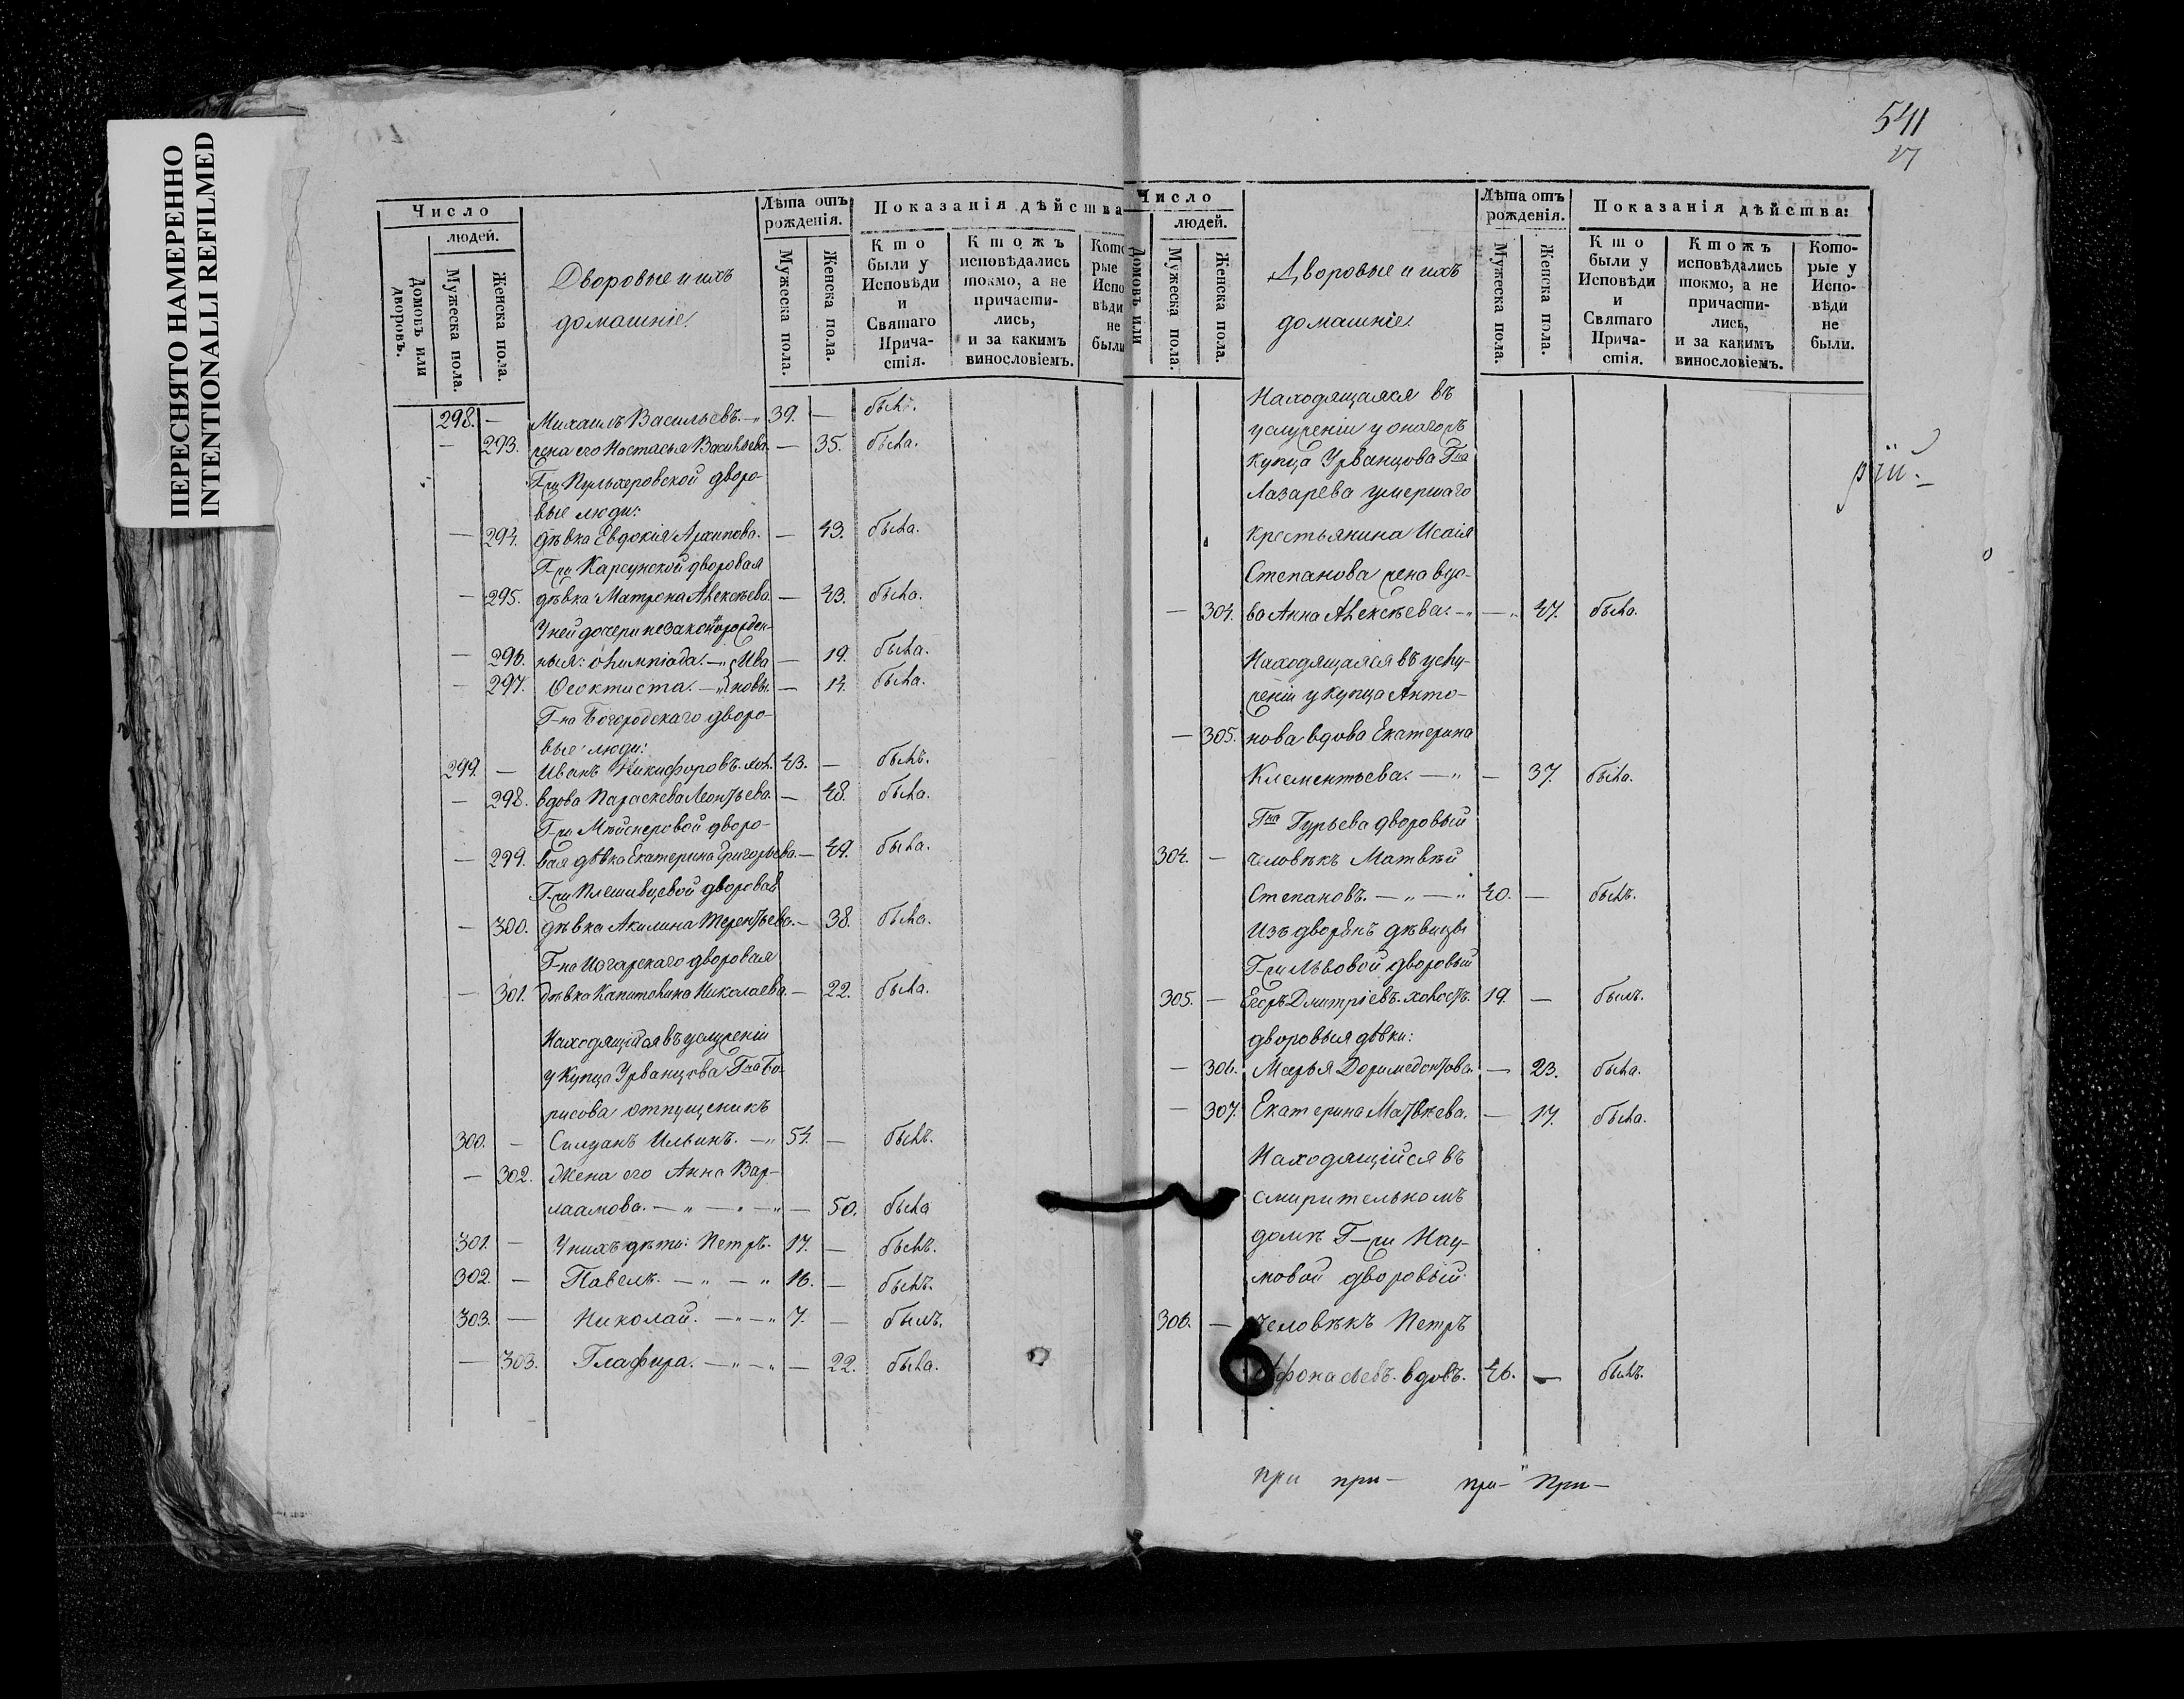 ПЕРЕСНЯТО НАМЕРЕННО
INTENTIONALLI REFILMED
541
Число
людей.
Домовъ или дворовъ.
Мужеска пола.
Женска пола.
Дворовые и ихъ
домашніе.
Лѣта отъ рожденія.
Мужеска пола.
Женска пола.
Показанія дѣйства
Кто были у Исповѣди и Святаго Прича-стія.
Ктожъ исповѣдались токмо, а не причасти-лись, и за какимъ винословіемъ.
Кото рые Испо вѣди не были
298. — Михаилъ Васильевъ. — 39. — былъ.
— 293. жена его Настасья Васильева. — 35. была.
Г-жи Пульхеровской дворо-
вые люди:
— 294. дѣвка Евдокія Архипова. — 43. была.
Г-жи Карсунской дворовая
— 295. дѣвка Матрона Алексѣева. — 43. была.
У ней дочери незаконорожден-
— 296. ныя: Олимпіада. — Ива — 19. была.
— 297. Ѳеоктиста. — новы. — 14. была.
Г-на Богородскаго дворо-
вые люди:
299. — Иванъ Никифоровъ. хол. 43. — былъ.
— 298. вдова Параскева Леонтьева. — 48. была.
Г-жи Мейснеровой дворо-
— 299. вая дѣвка Екатерина Григорьева. — 49. была.
Г-жи Плешивцевой дворовая
— 300. дѣвка Акилина Терентьева. — 38. была.
дворовая
— 301. дѣвка Капитолина Николаева. — 22. была.
Находящійся въ услуженіи
у Купца Урванцова Г-на Бо-
рисова отпущеникъ
300. — Силуанъ Ильинъ. — 54. — былъ.
— 302. Жена его Анна Вар-
лаамова. — — — 50. была
301. — У нихъ дѣти: Петръ. 17. — былъ.
302. — Павелъ. — — 16. — былъ.
303. — Николай. — — 7. — былъ.
— 303. Глафира. — — — 22. была.
Число
людей.
Домовъ или
Мужеска пола.
Женска пола.
Дворовые и ихъ
домашніе.
Лѣта отъ рожденія.
Мужеска пола.
Женска пола.
Показанія дѣйства:
Кто были у Исповѣди и Святаго Прича-стія.
Ктожъ исповѣдались токмо, а не причасти-лись, и за какимъ винословіемъ.
Кото-рые у Испо-вѣди не были.
Находящаяся въ
услуженіи у онагожъ
Купца Урванцова Г-на
Лазарева умершаго
крестьянина Исаія
Степанова жена вдо-
— 304. ва Анна Алексѣева. — — 47. была.
Находящаяся въ услу-
женіи у Купца Анто-
— 305. нова вдова Екатерина
Клементьева. — — 37. была.
Г-на Гурьева дворовый
304. — человѣкъ Матвѣй
Степановъ. — — 40. — былъ.
Изъ дворянъ дѣвицы
Г-жи Львовой дворовый
305. — Егоръ Дмитріевъ. холостъ. 19. — былъ.
дворовыя дѣвки:
— 306. Марья Доримедонтова. — 23. была.
— 307. Екатерина Матвѣева. — 17. была.
Находящійся въ
смирительномъ
домѣ Г-жи Нау-
мовой дворовый
306. — человѣкъ Петръ
Афонасьевъ. вдовъ. 46. — былъ.
при при— при— При—